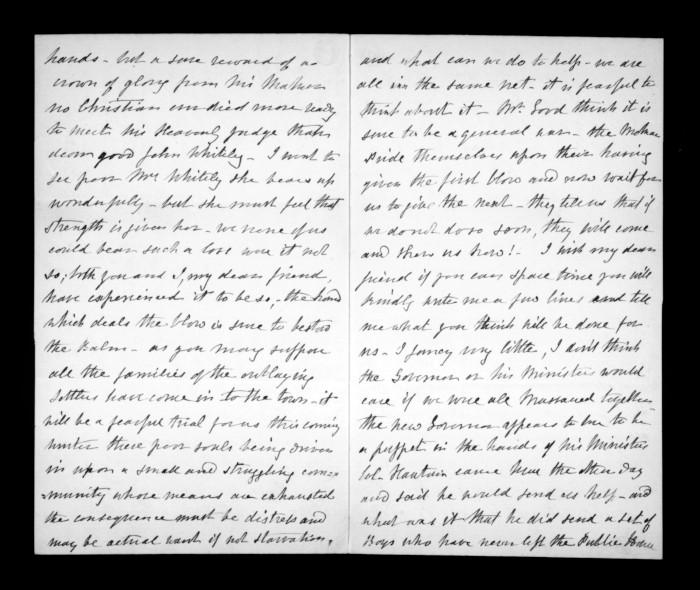 hands - but a sure reward of a
crown of glory from his Maker
no Christian ever died more ready
to meet his Heavenly Judge than
dear good John Whiteley - I went to
see poor Mrs Whiteley she bears up
wonderfully - but she must feel that
strength is given her - we none of us
could bear such a loss were it not
so; both you and I, my dear friend,
have experienced it to be so, - the hand
which deals the blow is sure to bestow
the Balm - as you may suppose
all the families of the outlaying
settlers have come in to the town - it
will be a fearful trial for us this coming
winter these poor souls being driven
in upon a small and struggling com=
=munity whose means are exhausted
the consequence must be distress and
may be actual want if not starvation,
and what can we do to help - we are
all in the same net - it is fearful to
think about it - Mr. Good thinks it is
sure to be a general war - the Maoris
pride themselves upon their having
given the first blow and now wait for
us to give the next - they tell us that if
we don't do so soon, they will come
and shew us how! - I wish my dear
friend if you can spare time you will
kindly write me a few lines and tell
me what you think will be done for
us - I fancy very little, I don't think
the Governor or his Ministers would
care if we were all Massacred together
the new Governor appears to me to be
a puppet in the hands of his Ministers
Col. Haultain came here the other day
and said he would send us help - and
what was it - that he did send a set of
Boys who have never left the Public House